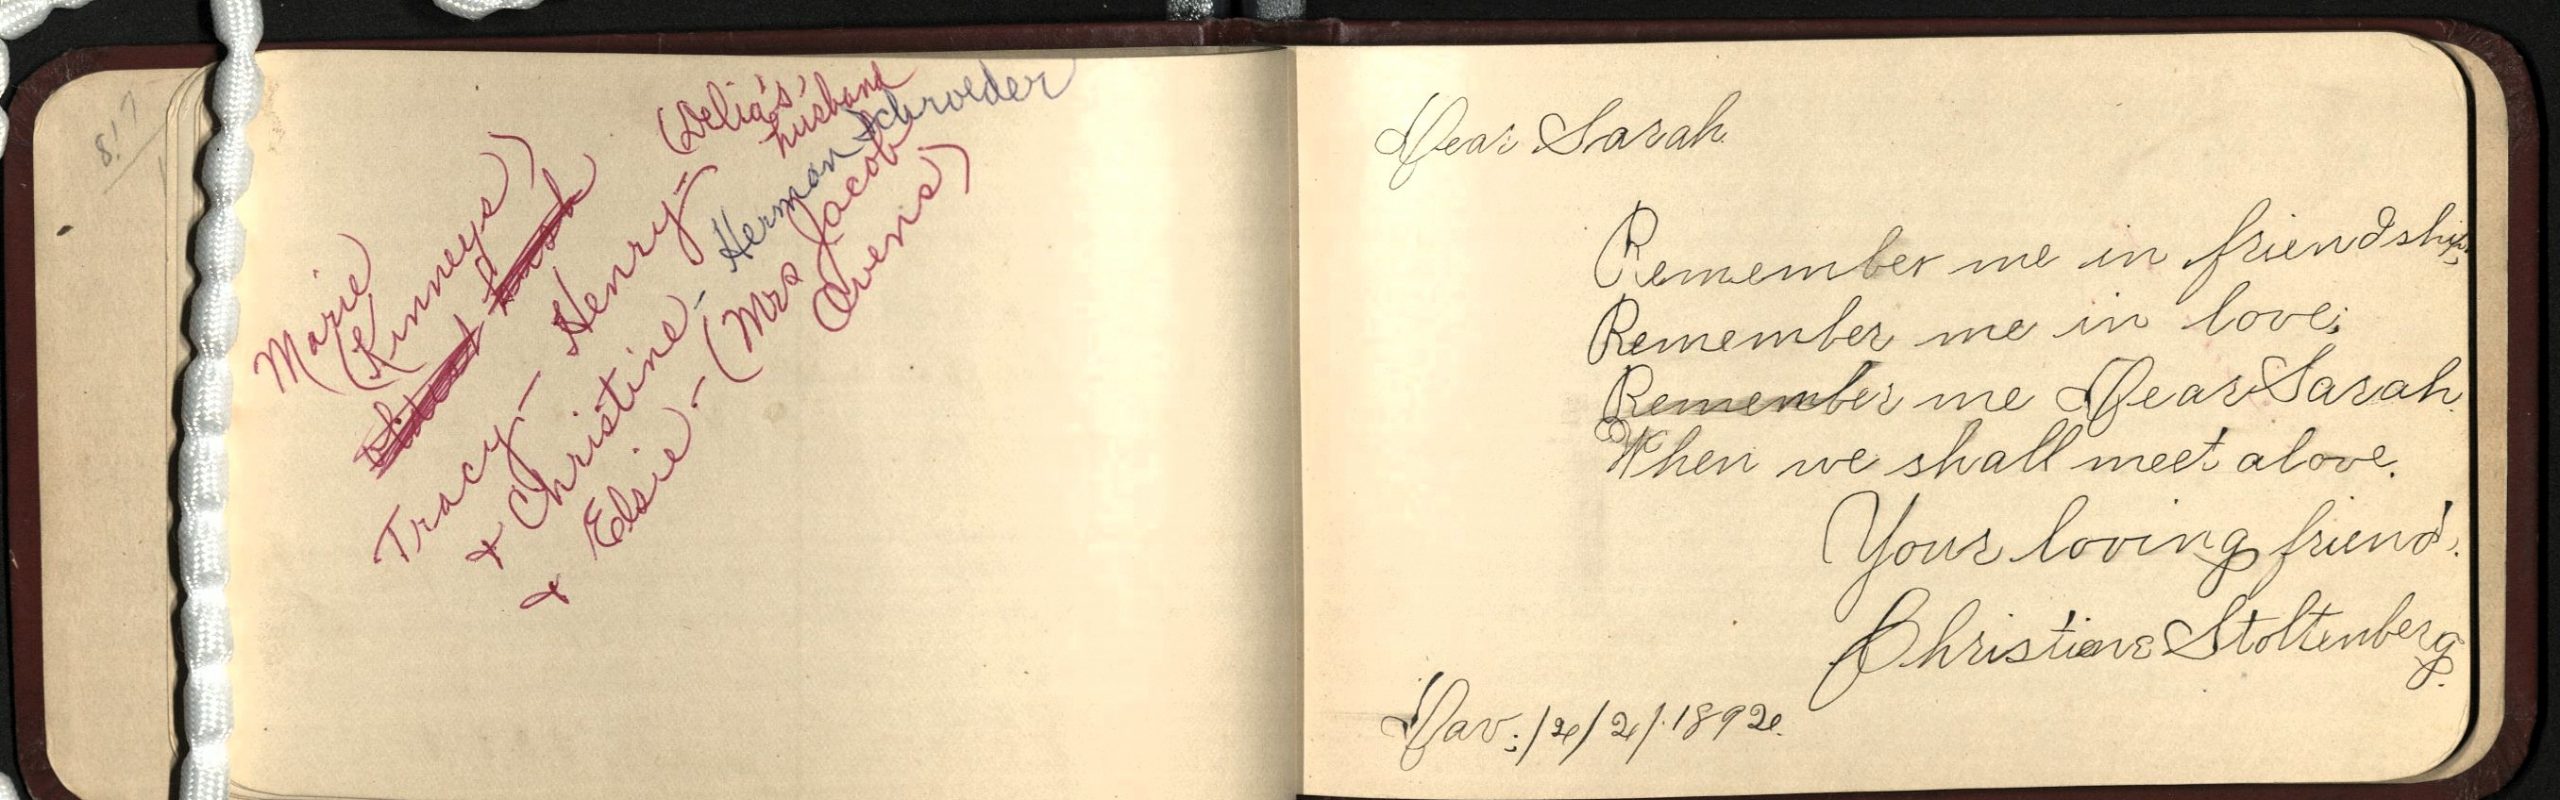 8!7
Marie
(Kinneys)
Tracy - Henry - (Delia's husband
& Christine - Herman Schroeder
& Elsie - (Mrs Jacob
Ovens)
Dear Sarah
Remember me in friendship,
Remember me in love;
Remember me Dear Sarah
When we shall meet alove.
Your loving friend.
Christiene Stoltenberg.
Dav; /2/2/.1892.